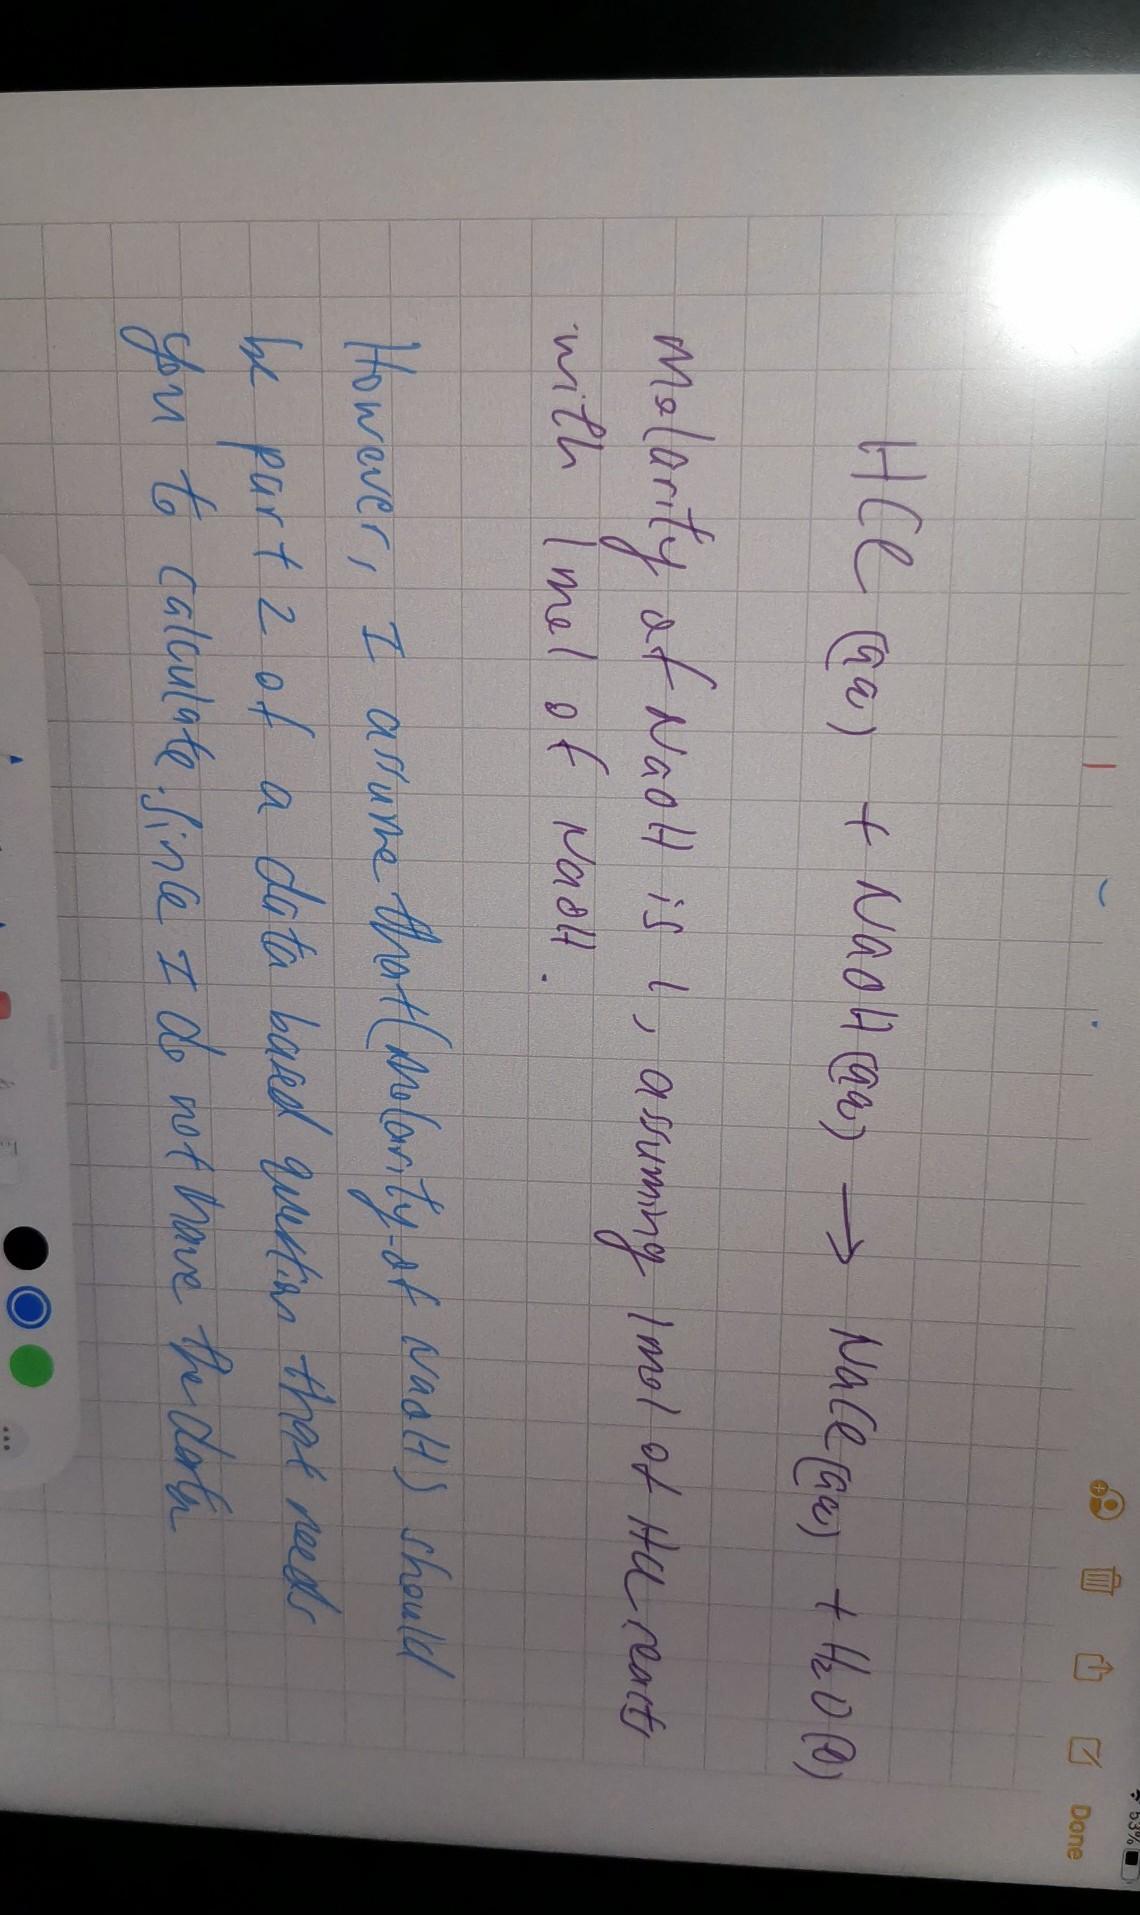 53%
Done
HCl (aq) + NaOH (aq) → NaCl (aq) + H₂O (l)
Molarity of NaOH is 1, assuming 1 mol of HCl reacts
with 1 mol of NaOH.
However, I assume that (molarity of NaOH) should
be part 2 of a data based question that needs
you to calculate. Since I do not have the data